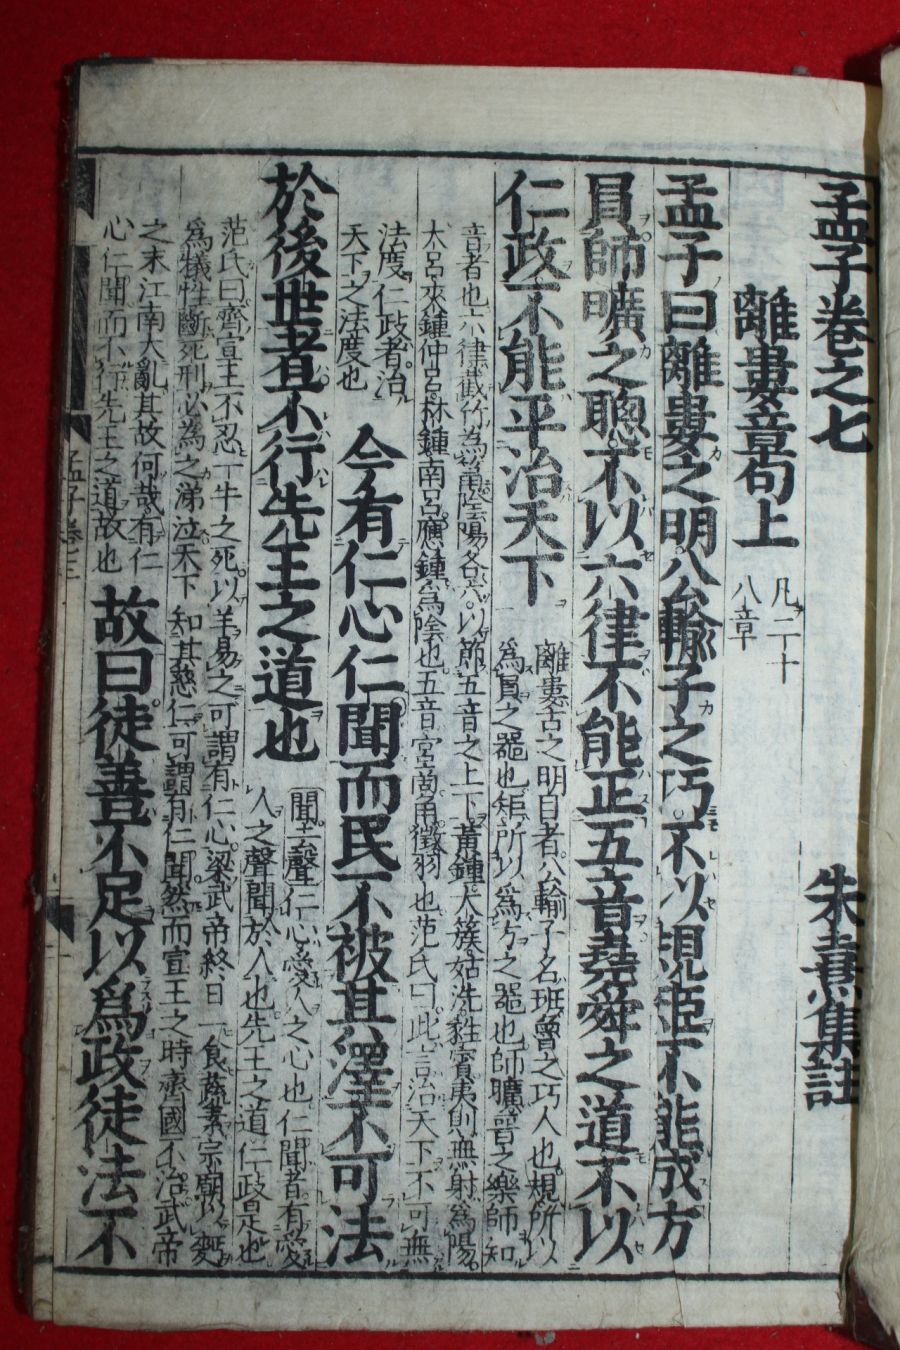 孟子卷之七
朱熹集註
離婁章句上
凡二十
八章
孟子曰離婁之明公輸子之巧不以規矩不能成方
員師曠之聰不以六律不能正五音堯舜之道不以
仁政不能平治天下
離婁古之明目者公輸子名班魯之巧人也規所以
為員之器也矩所以為方之器也師曠晉之樂師知
音者也六律截竹為筩陰陽各六以節五音之上下黃鍾大簇姑洗蕤賓夷則無射為陽
大呂夾鍾仲呂林鍾南呂應鍾為陰也五音宮商角徵羽也范氏曰此言治天下不可無
法度仁政者治
天下之法度也
今有仁心仁聞而民不被其澤不可法
於後世者不行先王之道也
聞去聲仁心愛人之心也仁聞者有愛
人之聲聞於人也先王之道仁政是也
范氏曰齊宣王不忍一牛之死以羊易之可謂有仁心梁武帝終日一食蔬素宗廟以麪
為犧牲斷死刑必為之涕泣天下知其慈仁可謂有仁聞然而宣王之時齊國不治武帝
之末江南大亂其故何哉有仁
心仁聞而不行先王之道故也
故曰徒善不足以為政徒法不
孟子卷